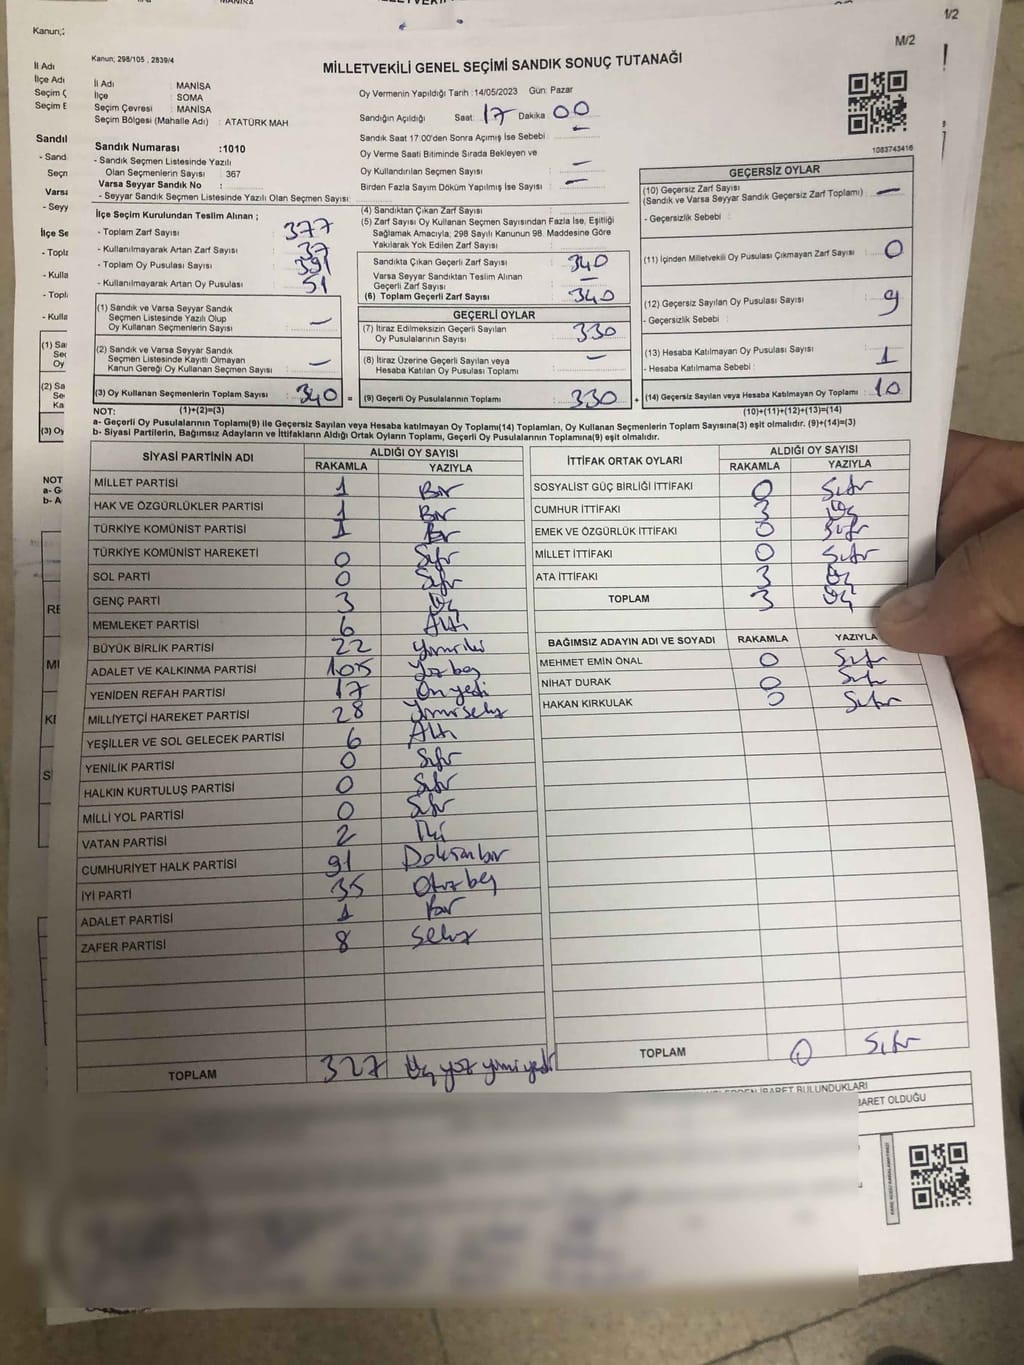 1/2
M/2
Kanun; 298/105 , 2839/4
MİLLETVEKİLİ GENEL SEÇİMİ SANDIK SONUÇ TUTANAĞI
İl Adı : MANİSA
İlçe : SOMA
Seçim Çevresi : MANİSA
Seçim Bölgesi (Mahalle Adı) : ATATÜRK MAH
Oy Vermenin Yapıldığı Tarih :14/05/2023 Gün: Pazar
Sandığın Açıldığı Saat: 17 Dakika 00
Sandık Saat 17:00'den Sonra Açımış İse Sebebi : –
Oy Verme Saati Bitiminde Sırada Bekleyen ve
Oy Kullandırılan Seçmen Sayısı : –
Birden Fazla Sayım Döküm Yapılmış İse Sayısı : –
1083743416
Sandık Numarası :1010
- Sandık Seçmen Listesinde Yazılı
Olan Seçmenlerin Sayısı : 367
Varsa Seyyar Sandık No :
- Seyyar Sandık Seçmen Listesinde Yazılı Olan Seçmen Sayısı:
İlçe Seçim Kurulundan Teslim Alınan ;
- Toplam Zarf Sayısı : 377
- Kullanılmayarak Artan Zarf Sayısı : 37
- Toplam Oy Pusulası Sayısı : 391
- Kullanılmayarak Artan Oy Pusulası : 51
(1) Sandık ve Varsa Seyyar Sandık
Seçmen Listesinde Yazılı Olup
Oy Kullanan Seçmenlerin Sayısı : –
(2) Sandık ve Varsa Seyyar Sandık
Seçmen Listesinde Kayıtlı Olmayan
Kanun Gereği Oy Kullanan Seçmen Sayısı : –
(3) Oy Kullanan Seçmenlerin Toplam Sayısı : 340 =
(4) Sandıktan Çıkan Zarf Sayısı :
(5) Zarf Sayısı Oy Kullanan Seçmen Sayısından Fazla İse, Eşitliği
Sağlamak Amacıyla, 298 Sayılı Kanunun 98. Maddesine Göre
Yakılarak Yok Edilen Zarf Sayısı :
Sandıkta Çıkan Geçerli Zarf Sayısı : 340
Varsa Seyyar Sandıktan Teslim Alınan
Geçerli Zarf Sayısı : –
(6) Toplam Geçerli Zarf Sayısı : 340
GEÇERLİ OYLAR
(7) İtiraz Edilmeksizin Geçerli Sayılan
Oy Pusulalarının Sayısı : 330
(8) İtiraz Üzerine Geçerli Sayılan veya
Hesaba Katılan Oy Pusulası Toplamı : –
(9) Geçerli Oy Pusulalarının Toplamı : 330 +
GEÇERSİZ OYLAR
(10) Geçersiz Zarf Sayısı
(Sandık ve Varsa Seyyar Sandık Geçersiz Zarf Toplamı) : –
- Geçersizlik Sebebi :
(11) İçinden Milletvekili Oy Pusulası Çıkmayan Zarf Sayısı : 0
(12) Geçersiz Sayılan Oy Pusulası Sayısı : 9
- Geçersizlik Sebebi :
(13) Hesaba Katılmayan Oy Pusulası Sayısı : 1
- Hesaba Katılmama Sebebi :
(14) Geçersiz Sayılan veya Hesaba Katılmayan Oy Toplamı : 10
NOT: (1)+(2)=(3) (10)+(11)+(12)+(13)=(14)
a- Geçerli Oy Pusulalarının Toplamı(9) ile Geçersiz Sayılan veya Hesaba katılmayan Oy Toplamı(14) Toplamları, Oy Kullanan Seçmenlerin Toplam Sayısına(3) eşit olmalıdır. (9)+(14)=(3)
b- Siyasi Partilerin, Bağımsız Adayların ve İttifakların Aldığı Ortak Oyların Toplamı, Geçerli Oy Pusulalarının Toplamına(9) eşit olmalıdır.
SİYASİ PARTİNİN ADI ALDIĞI OY SAYISI
RAKAMLA YAZIYLA
MİLLET PARTİSİ 1 Bir
HAK VE ÖZGÜRLÜKLER PARTİSİ 1 Bir
TÜRKİYE KOMÜNİST PARTİSİ 1 Bir
TÜRKİYE KOMÜNİST HAREKETİ 0 Sıfır
SOL PARTİ 0 Sıfır
GENÇ PARTİ 3 Üç
MEMLEKET PARTİSİ 6 Altı
BÜYÜK BİRLİK PARTİSİ 22 Yirmi iki
ADALET VE KALKINMA PARTİSİ 105 Yüz beş
YENİDEN REFAH PARTİSİ 17 On yedi
MİLLİYETÇİ HAREKET PARTİSİ 28 Yirmi sekiz
YEŞİLLER VE SOL GELECEK PARTİSİ 6 Altı
YENİLİK PARTİSİ 0 Sıfır
HALKIN KURTULUŞ PARTİSİ 0 Sıfır
MİLLİ YOL PARTİSİ 0 Sıfır
VATAN PARTİSİ 2 İki
CUMHURİYET HALK PARTİSİ 91 Doksan bir
İYİ PARTİ 35 Otuz beş
ADALET PARTİSİ 1 Bir
ZAFER PARTİSİ 8 Sekiz
TOPLAM 327 Üç yüz yirmi yedi
İTTİFAK ORTAK OYLARI ALDIĞI OY SAYISI
RAKAMLA YAZIYLA
SOSYALİST GÜÇ BİRLİĞİ İTTİFAKI 0 Sıfır
CUMHUR İTTİFAKI 3 Üç
EMEK VE ÖZGÜRLÜK İTTİFAKI 0 Sıfır
MİLLET İTTİFAKI 0 Sıfır
ATA İTTİFAKI 3 Üç
TOPLAM 3 Üç
BAĞIMSIZ ADAYIN ADI VE SOYADI RAKAMLA YAZIYLA
MEHMET EMİN ÖNAL 0 Sıfır
NİHAT DURAK 0 Sıfır
HAKAN KIRKULAK 0 Sıfır
TOPLAM 0 Sıfır
İBARET BULUNDUKLARI
BARET OLDUĞU